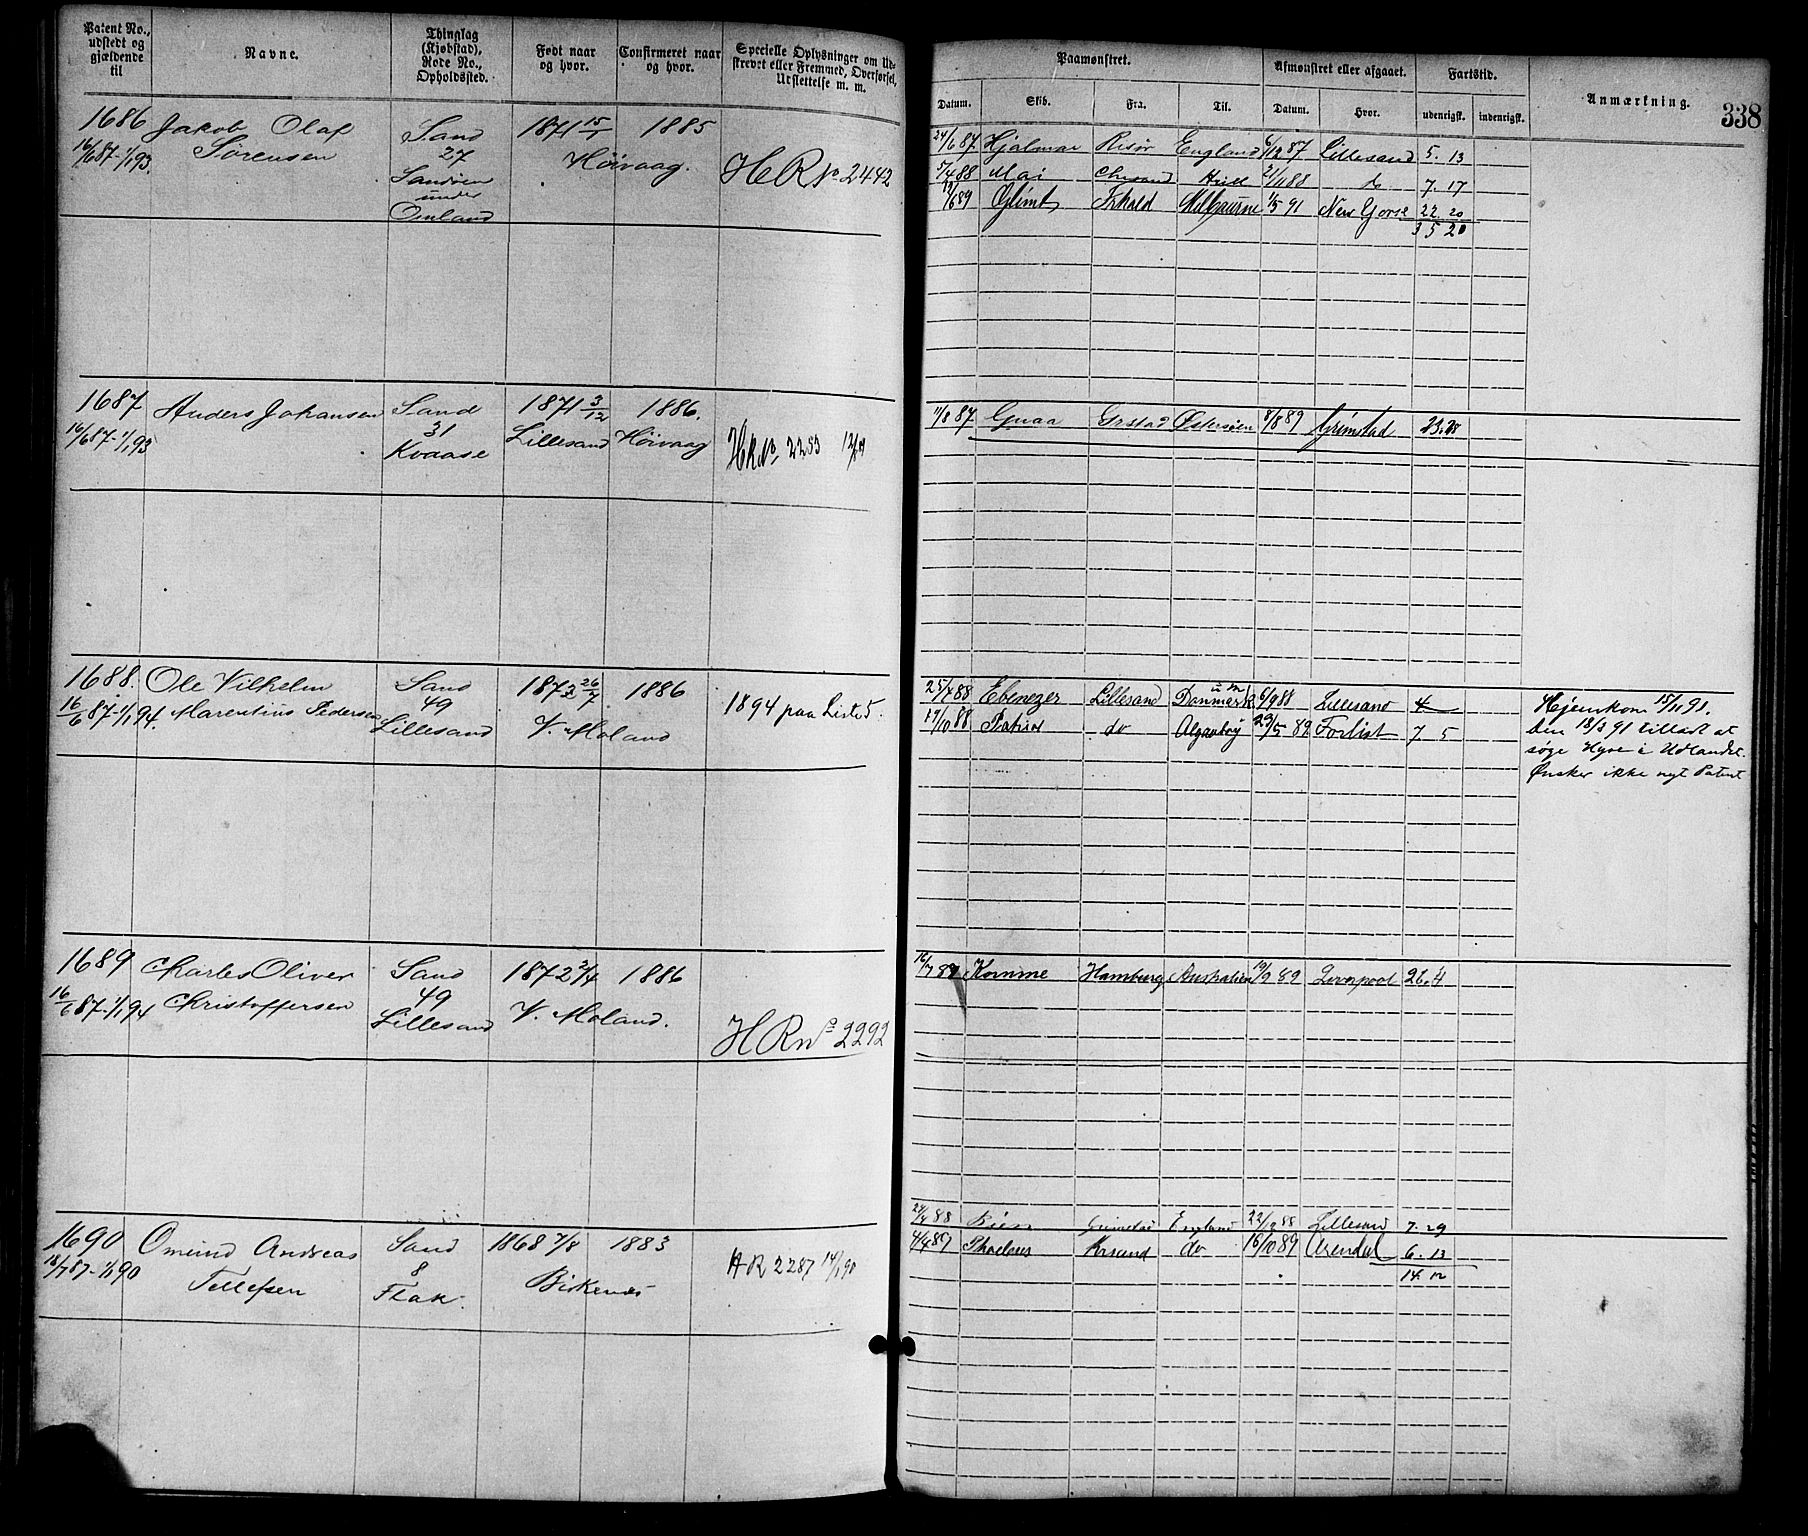 Patent No., udstedt og gjældende til
Navne.
Thinglag (Kjøbstad), Rode No., Opholdssted.
Født naar og hvor.
Confirmeret naar og hvor.
Specielle Oplysninger om Udskrevet eller Fremmed, Overførsel, Udslettelse m. m.
Paamønstret.
Afmønstret eller afgaaet.
Fartstid.
Anmærkning.
338
Datum.
Skib.
Fra.
Til.
Datum.
Hvor.
udenrigsk.
indenrigsk.
1686 Jakob Olaf Sand 1871 15/1 1885
16/6 87-1/1 93 Sørensen 27 Høivaag. HRNo 2442
Sandøen
under
Omland
24/6 87 Hjalmar Risør England 6/12 87 Lillesand 5. 13
5/4 88 Mai Chrsand Hull 21/11 88 do 7. 17
19/6 89 Glimt Frhald Melbourne 1/5 91 New York 22. 20
35 20
1687 Anders Johansen Sand 1871 3/12 1886.
16/6 87-1/1 93 31 Lillesand Høivaag HRNo. 2253
Kvaase
11/8 87 Gnaa Grstad Østersøen 8/8 89 Grimstad 23. 28
1688. Ole Vilhelm Sand 1872 26/7 1886
16/6 87-1/1 94. Marentius Pedersen 49 V. Moland 1894 paa Liste 5.
Lillesand
25/7 88 Ebenezer Lillesand Danmark 6/9 88 Lillesand
19/10 88 do 23/5 89 Forlist 7 5
Hjemkom 15/11 91.
Den 18/3 91 tilladt at
søge Hyre i Udlandet.
Ønsker ikke nyt Patent
1689 Charles Oliver Sand 1872 3/4 1886
16/6 87-1/1 94 Christoffersen 49 V. Moland.
Lillesand HRNo 2292
16/7 87 Komme Hamburg Australien 19/9 89 Liverpool 26. 4
1690 Omund Andreas Sand 1868 7/8 1883
18/7 87-1/1 90 Tellefsen 8 Birkenæs HR 2287 14/1 90
Flak.
24/4 88 Grimstad England 22/12 88 Lillesand 7. 29
4/4 89 Krsand do 16/10 89 Arendal 6. 13
14. 12